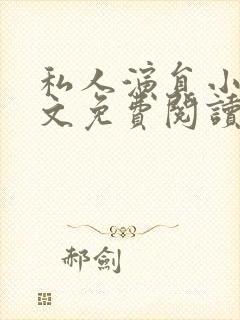 私人演員小
文免費閱讀
郝劍